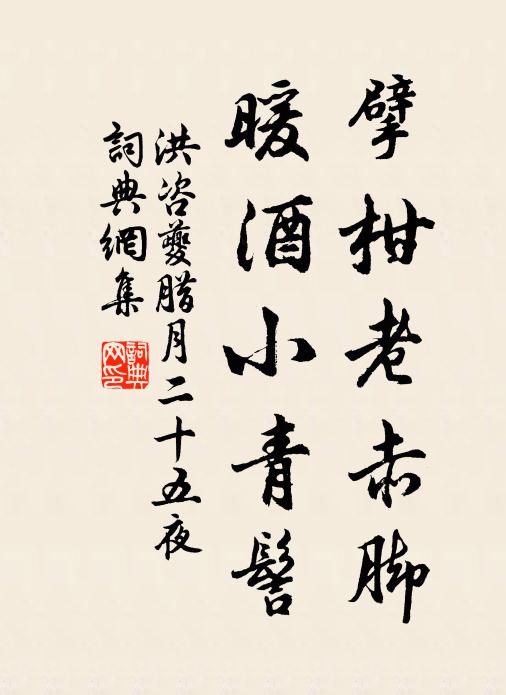 擘柑老赤脚
暖酒小青髻
洪咨夔腊月二十五夜
詞典網集
詞典
网印